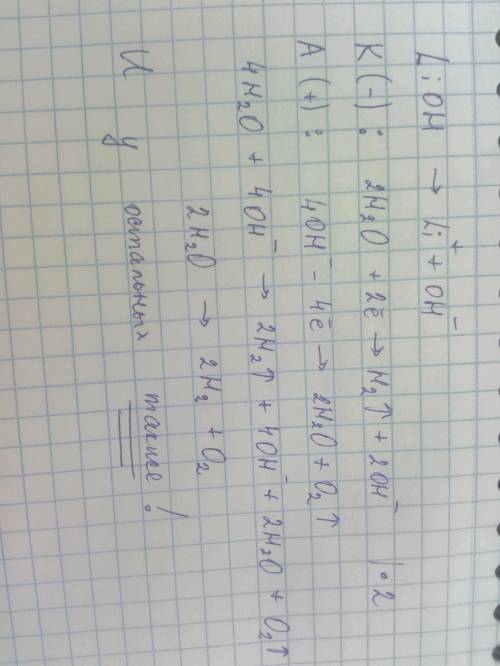 LiOH → Li⁺ + OH⁻
K (-) : 2H₂O + 2ē → H₂↑ + 2OH⁻ | • 2
A (+) : 4OH⁻ - 4ē → 2H₂O + O₂↑
4H₂O + 4OH⁻ → 2H₂↑ + 4OH⁻ + 2H₂O + O₂↑
2H₂O → 2H₂ + O₂
И у остальных также!